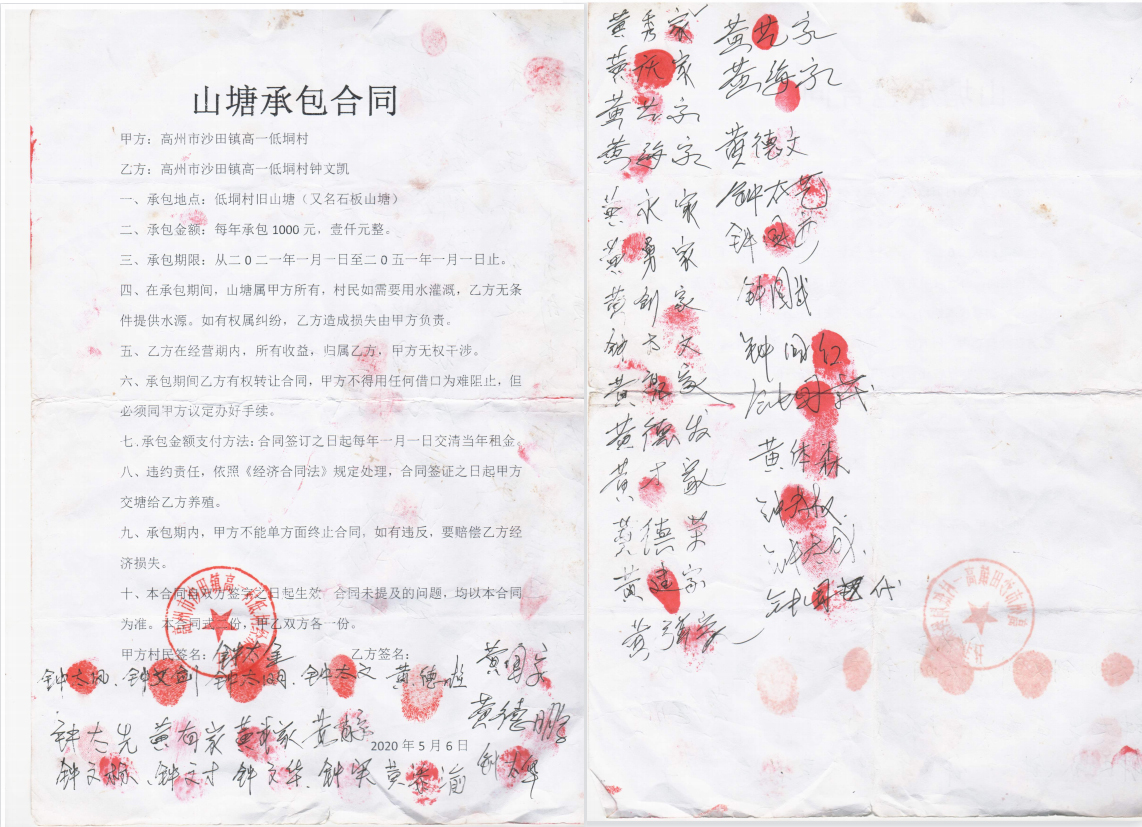 山塘承包合同
甲方：高州市沙田镇高一低垌村
乙方：高州市沙田镇高一低垌村钟文凯
一、承包地点：低垌村旧山塘（又名石板山塘）
二、承包金额：每年承包1000元，壹仟元整。
三、承包期限：从二0二一年一月一日至二0五一年一月一日止。
四、在承包期间，山塘属甲方所有，村民如需要用水灌溉，乙方无条
件提供水源。如有权属纠纷，乙方造成损失由甲方负责。
五、乙方在经营期内，所有收益，归属乙方，甲方无权干涉。
六、承包期间乙方有权转让合同，甲方不得用任何借口为难阻止，但
必须同甲方议定办好手续。
七.承包金额支付方法：合同签订之日起每年一月一日交清当年租金。
八、违约责任，依照《经济合同法》规定处理，合同签证之日起甲方
交塘给乙方养殖。
九、承包期内，甲方不能单方面终止合同，如有违反，要赔偿乙方经
济损失。
十、本合同自双方签字之日起生效 合同未提及的问题，均以本合同
为准。本合同式二份，甲乙双方各一份。
甲方村民签名： 乙方签名：
钟太凤、钟文创 钟太明、钟太文 黄德胜
黄德鹏
钟太先 黄有家
2020年5月6日
钟文林、钟文才 钟文华、钟深 黄
黄秀家
黄庆家
黄海家
黄永家
黄勇家
黄创家
黄德发
黄才家
黄德荣
黄建家
黄强家
黄海家
黄德文
钟太艺
钟国武
黄体森
钟太成